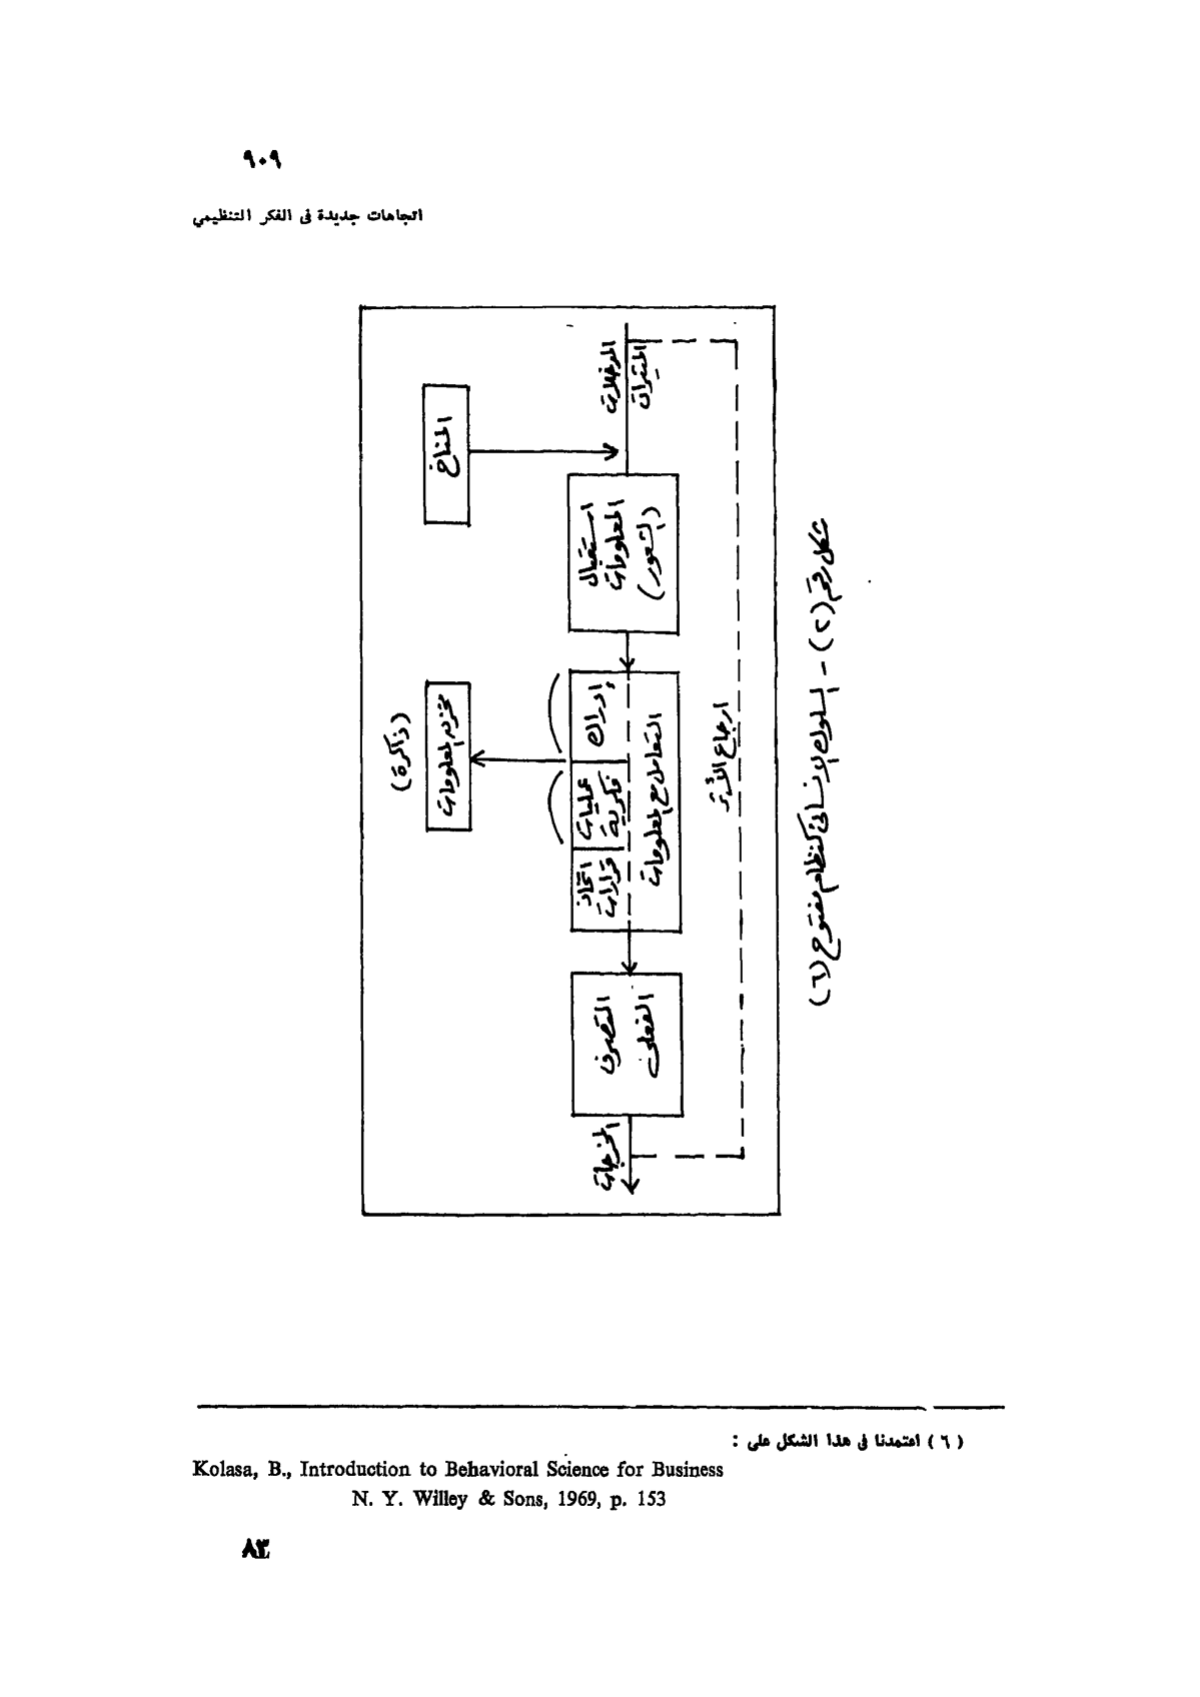 ٩٠٩
اتجاهات جديدة فى الفكر التنظيمي
المدخلات
المثيرات
المناخ
استقبال
المعلومات
(الشعور)
إدراك
عمليات
فكرية
اتخاذ
قرارات
التعامل مع المعلومات
مخزن المعلومات
(ذاكرة)
ارجاع الأثر
التصرف
الفعلى
المخرجات
شكل رقم (٢) - السلوك الإنسانى كنظام مفتوح (٦)
(٦) اعتمدنا فى هذا الشكل على :
Kolasa, B., Introduction to Behavioral Science for Business
N. Y. Willey & Sons, 1969, p. 153
٨٣